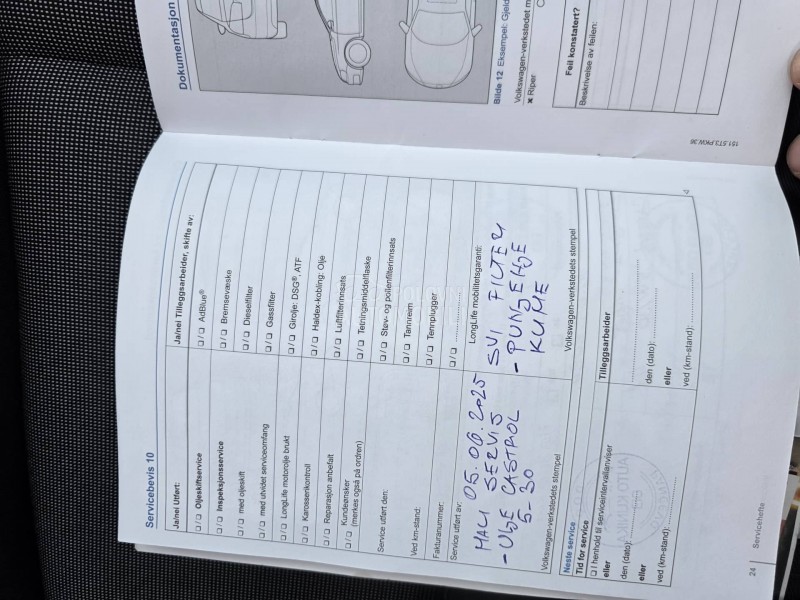 Dokumentasjon
Bilde 12 Eksempel: Gjeld
Volkswagen-verkstedet m
✖ Riper
Feil konstatert?
Beskrivelse av feilen:
151.5T3.PKW.36
Servicebevis 10
Ja/nei Utført:
❑ / ❑ Oljeskiftservice
❑ / ❑ Inspeksjonsservice
❑ / ❑ med oljeskift
❑ / ❑ med utvidet serviceomfang
❑ / ❑ LongLife motorolje brukt
❑ / ❑ Karosserikontroll
❑ / ❑ Reparasjon anbefalt
❑ / ❑ Kundeønsker
(merkes også på ordren)
Service utført den:
Ved km-stand:
Fakturanummer:
Service utført av:
MALI 05.06.2025
SERVIS
- ULJE CASTROL
5-30
Volkswagen-verkstedets stempel
Ja/nei Tilleggsarbeider, skifte av:
❑ / ❑ AdBlue®
❑ / ❑ Bremsevæske
❑ / ❑ Dieselfilter
❑ / ❑ Gassfilter
❑ / ❑ Girolje: DSG®, ATF
❑ / ❑ Haldex-kobling: Olje
❑ / ❑ Luftfilterinnsats
❑ / ❑ Tetningsmiddelflaske
❑ / ❑ Støv- og pollenfilterinnsats
❑ / ❑ Tannreim
❑ / ❑ Tennplugger
❑ / ❑ ....................
LongLife mobilitetsgaranti:
SVI FILTERI
- PUNJENJE
KLIME
Volkswagen-verkstedets stempel
Neste service
Tid for service
❑ I henhold til serviceintervallanviser
eller
den (dato):
eller
ved (km-stand):
Tilleggsarbeider
den (dato):
eller
ved (km-stand):
24 Servicehefte